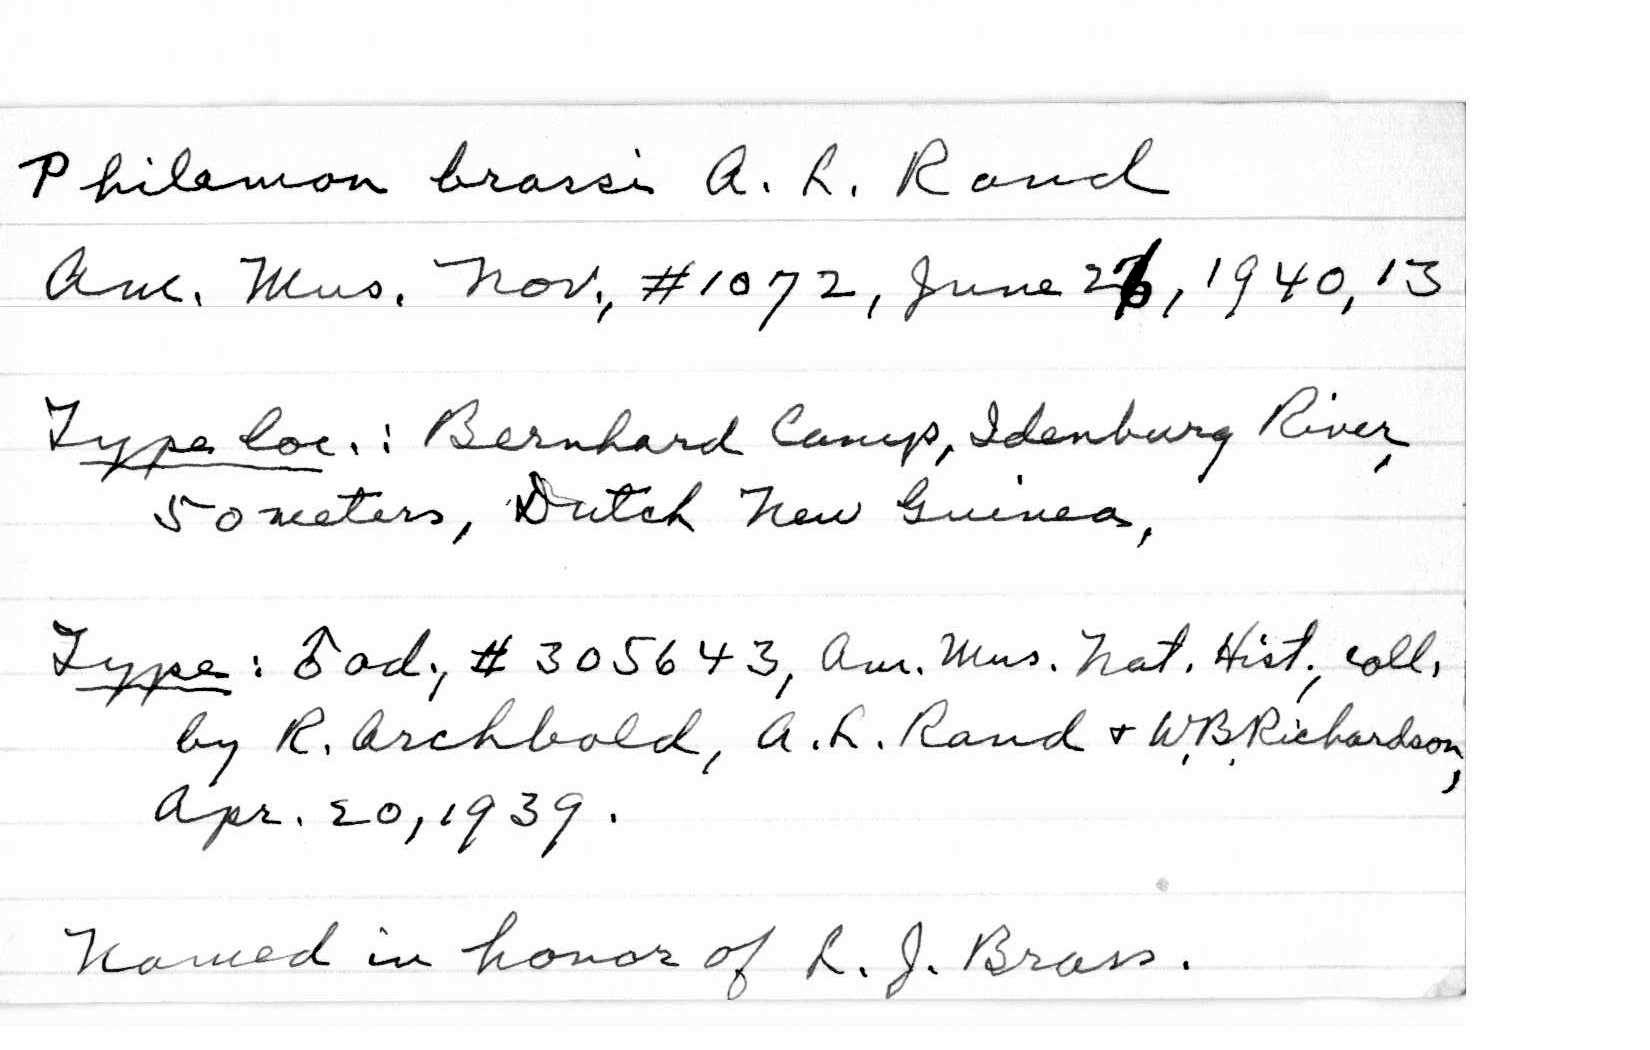 Philemon brassi A. L. Rand
Am. Mus. Nov., #1072, June 26, 1940, 13
Type loc.: Bernhard Camp, Idenburg River,
50 meters, Dutch New Guinea,
Type: ♂ ad., #305643, Am. Mus. Nat. Hist., coll.
by R. Archbold, A. L. Rand & W.B. Richardson,
Apr. 20, 1939.
Named in honor of L. J. Brass.